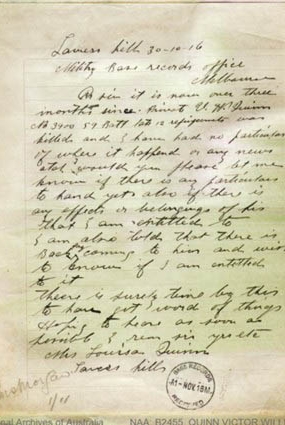 Lavers hill 30-10-16
Military Base records office
Melbourne
Dr Sir it is now over three
months since Private V. W. Quinn
No 3900 59 Batt late 12 reinforcements was
killed and I have had no particulars
of where it happend or any news
atal would you please let me
know if there is any particulars
to hand yet also if there is
any effects or belongings of his
that I am entitled to
I am also told that there is
Back coming to him and wish
to know if I am entitled
to it
there is surely time by this
to have got word of things
Hoping to hear as soon as
possible I remain
Mrs Louisa Quinn
Lavers hills
BASE RECORDS
1-NOV 1916
RECEIVED
1/11
National Archives of Australia NAA: B2455, QUINN VICTOR WILLI